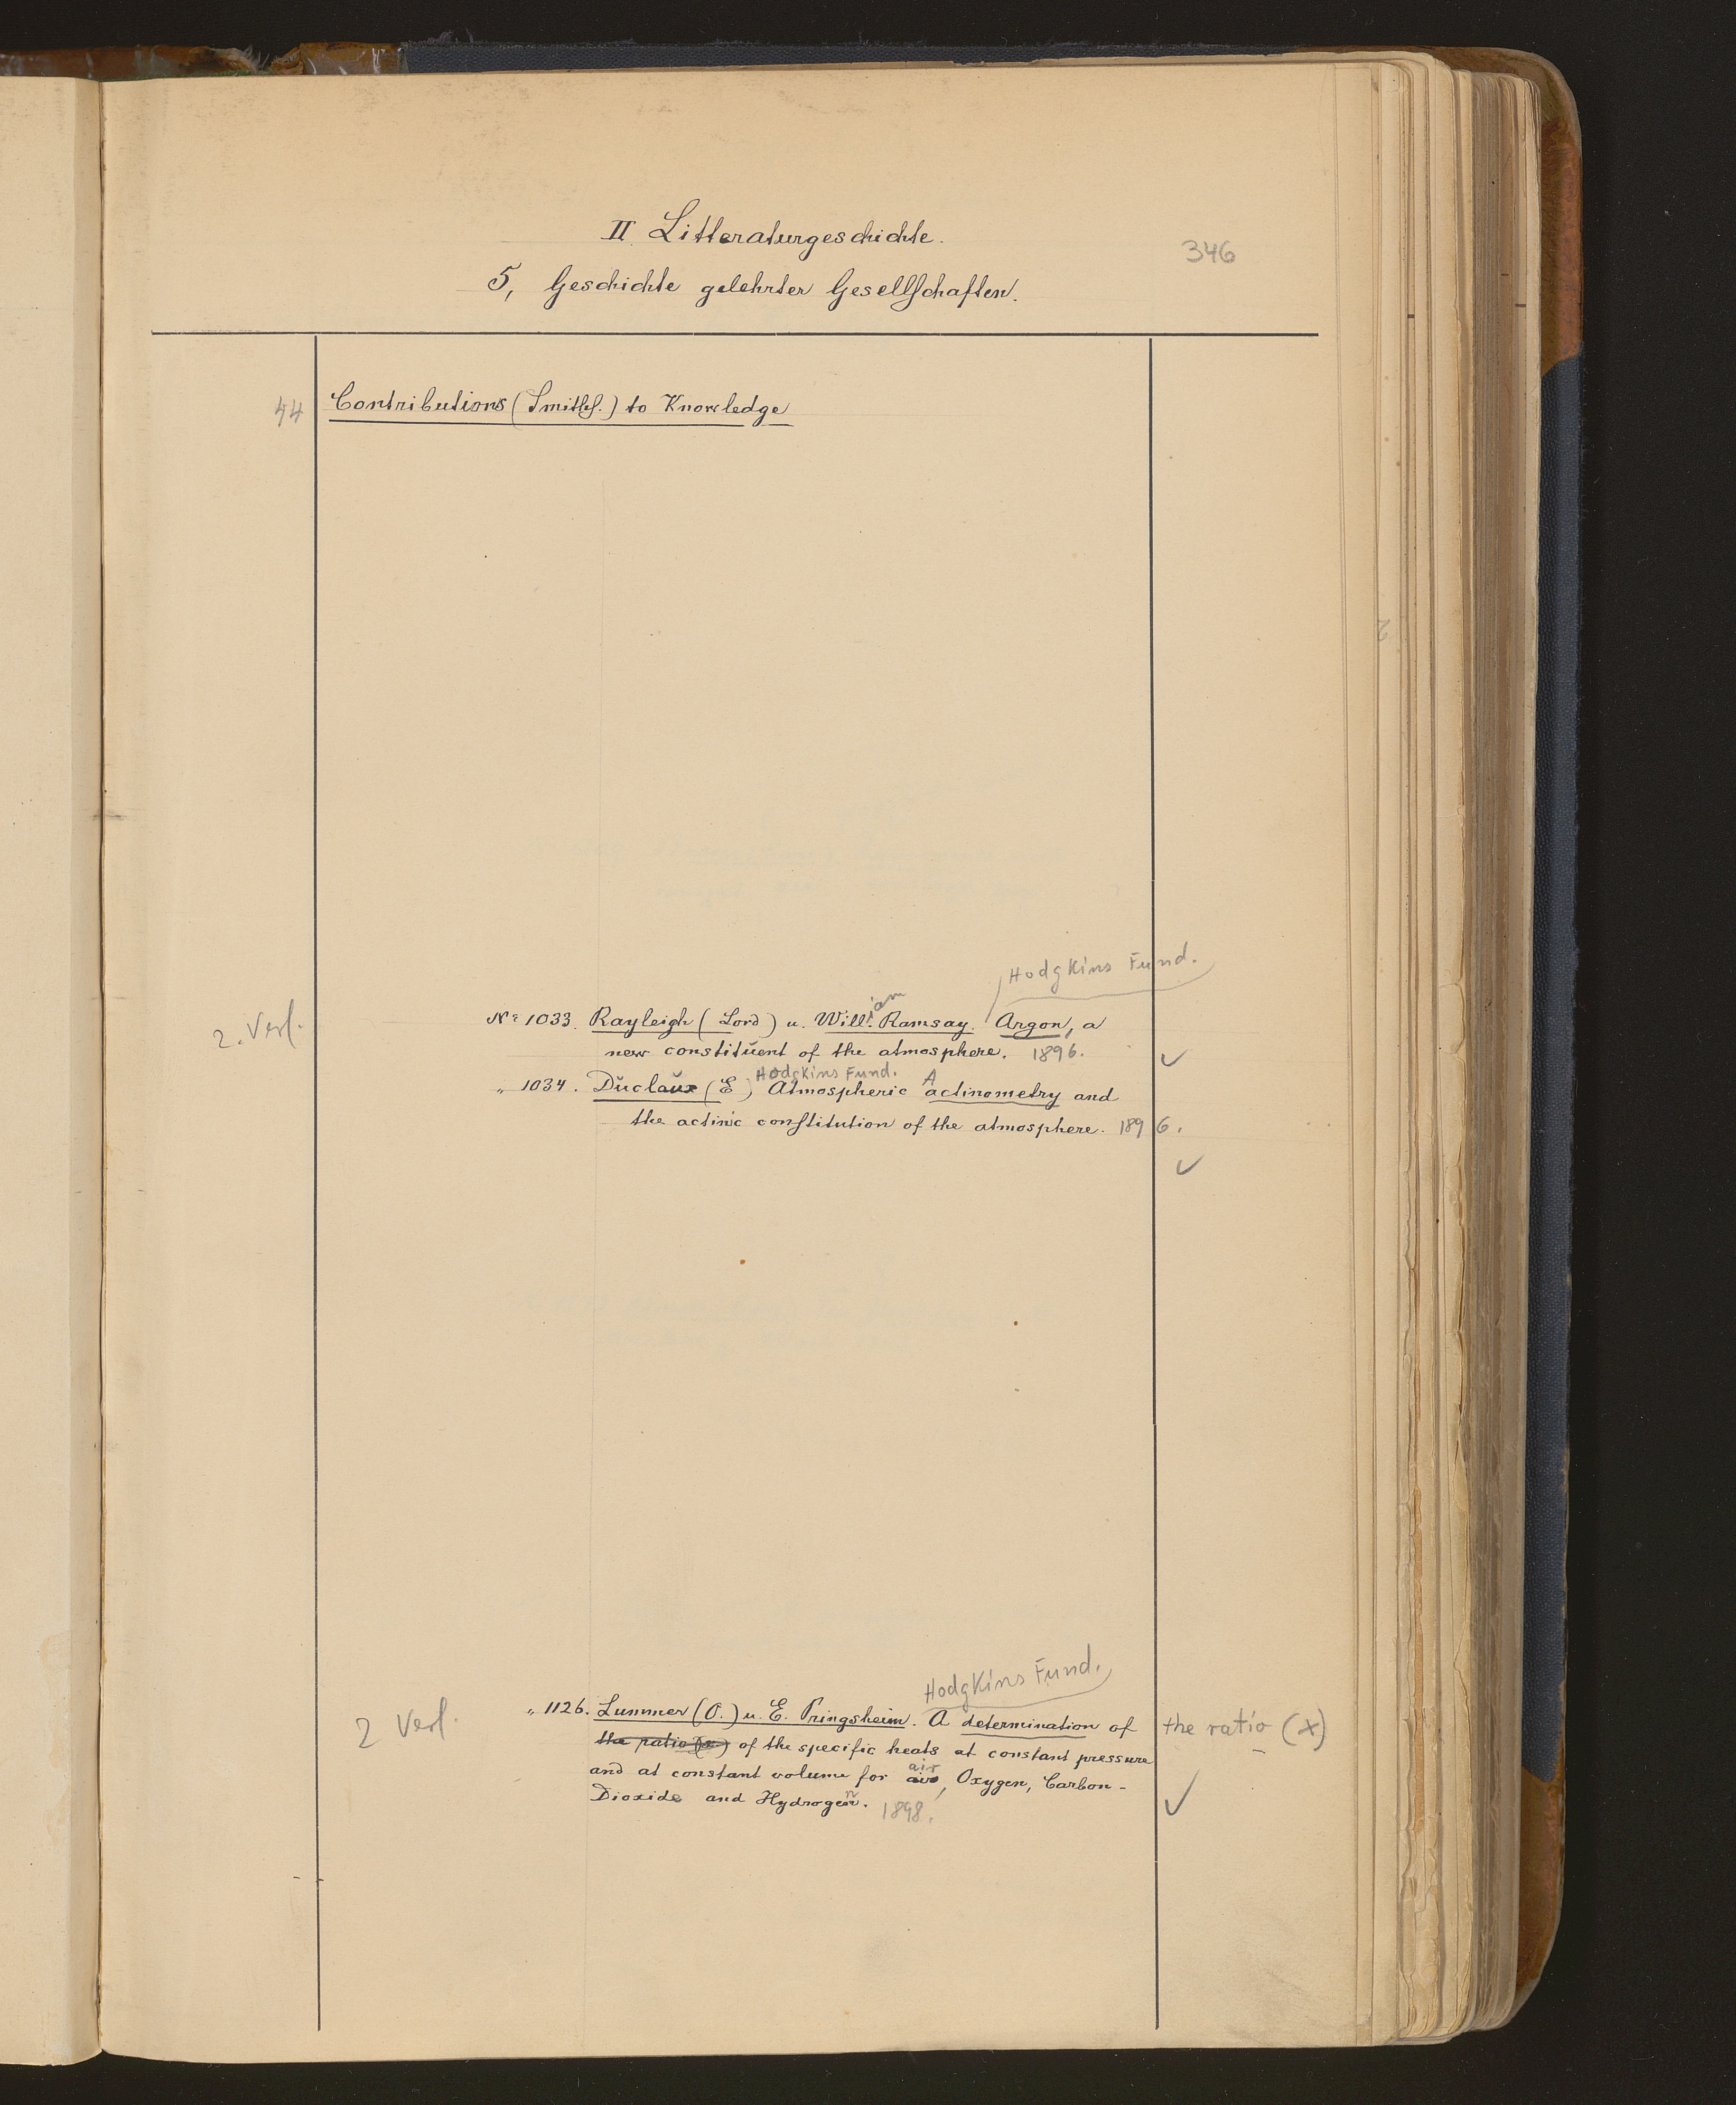 II Litteraturgeschichte.
346
5, Geschichte gelehrter Gesellschaften.
44 Contributions (Smiths.) to Knowledge
Hodgkins Fund.
2. Verf. No 1033. Rayleigh (Lord) u. William Ramsay. Argon, a
new constituent of the atmosphere. 1896. ✓
Hodgkins Fund. A
„ 1034. Duclaux (E) Atmospheric actinometry and
the actinic constitution of the atmosphere. 1896.
✓
Hodgkins Fund.
2 Verf. „ 1126. Lummer (O.) u. E. Pringsheim. A determination of the ratio (x)
the ratio of the specific heats at constant pressure
and at constant volume for air, Oxygen, Carbon-
Dioxide and Hydrogen. 1898. ✓